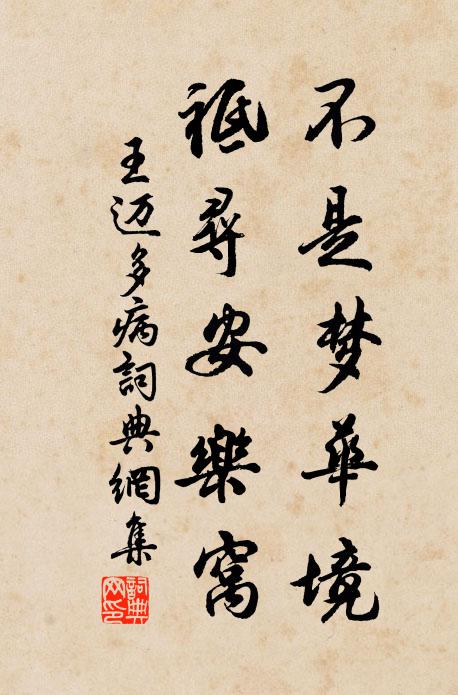 不是梦华境
祗尋安樂窩
王迈多病詞典網集
詞典网印